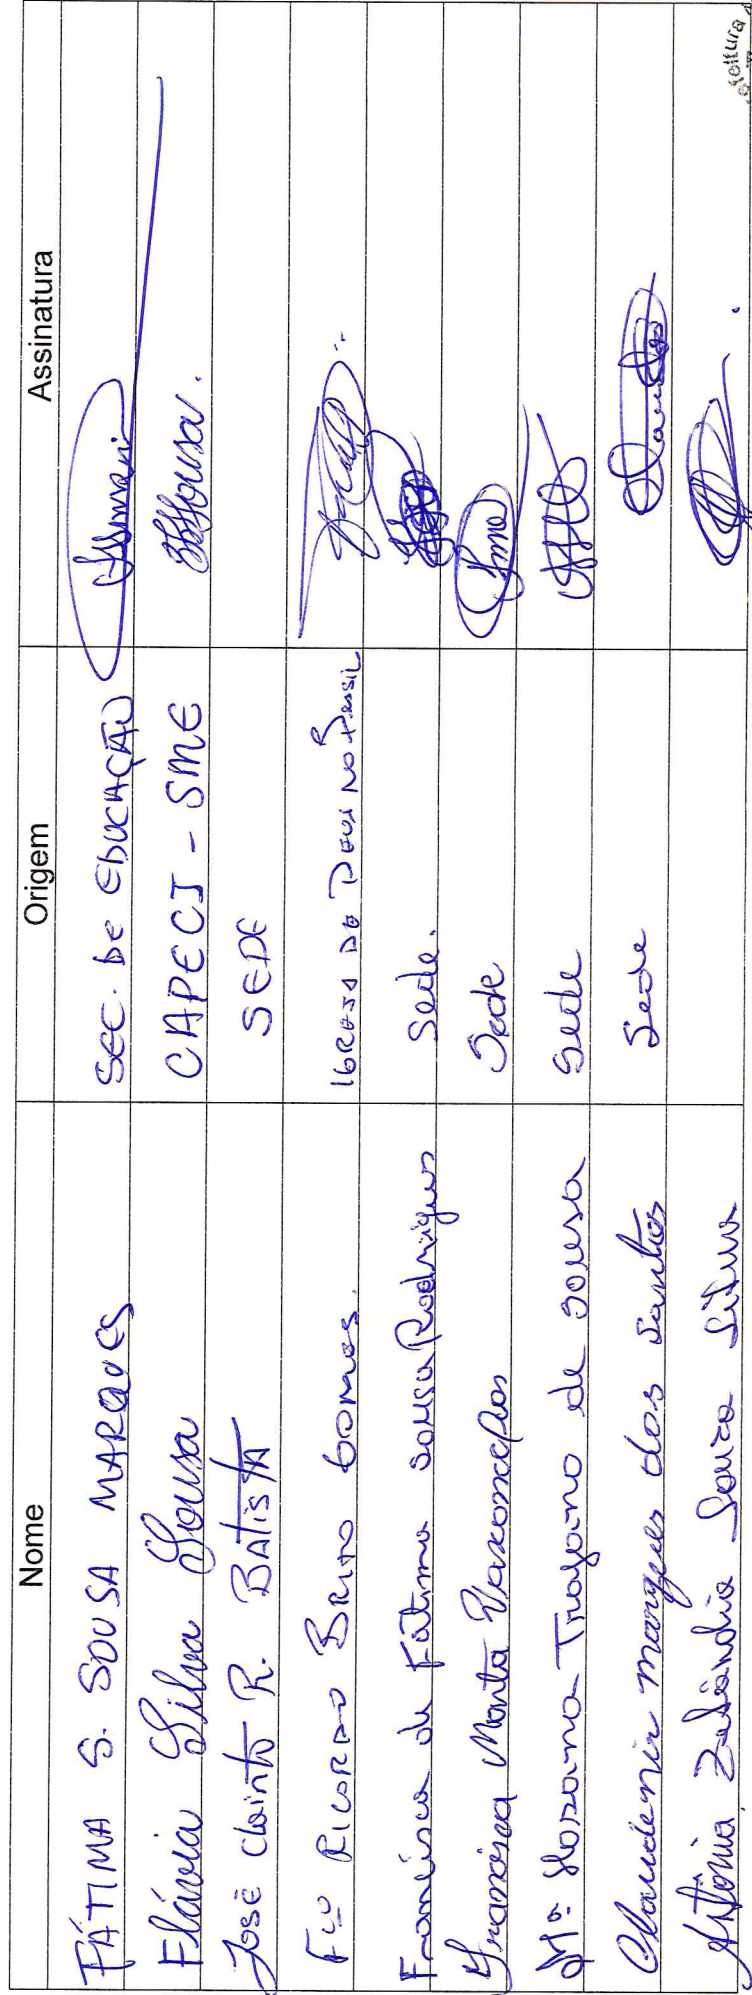 Nome Origem Assinatura
FÁTIMA S. SOUSA MARQUES SEC. DE EDUCAÇÃO
Flávia Silva Sousa CAPECI - SME Sousa.
José R. BAtistA SEDE
Fco RICARDO BRITO GOMES. IGREJA DE DEUS NO BRASIL
Francisca de Fátima Sousa Rodrigues Sede.
Francisca Marta Vasconcelos Sede
Mª Hosana Trajano de Sousa Sede
Claudenir marques dos Santos Sede
Antônia Souza